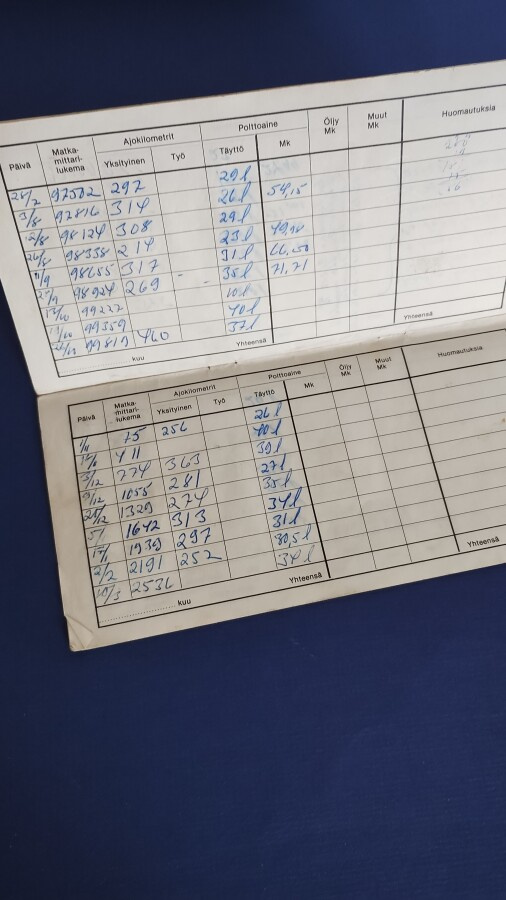 Päivä Matka-mittari-lukema Ajokilometrit Yksityinen Työ Polttoaine Täyttö Mk Öljy Mk Muut Mk Huomautuksia
28/2 97502 297 29 l
3/8 97816 314 26 l 54,15
12/8 98124 308 29 l
26/8 98338 214 23 l 49,98
11/9 98655 317 31 l 66,50
27/9 98924 269 35 l 71,71
12/10 99227 10 l
17/10 99359 40 l
99819 460 37 l
kuu Yhteensä Yhteensä
Päivä Matka-mittari-lukema Ajokilometrit Yksityinen Työ Polttoaine Täyttö Mk Öljy Mk Muut Mk Huomautuksia
1/11 75 256 26 l
411 40 l
3/12 774 363 39 l
9/12 1055 281 27 l
25/12 1329 274 35 l
5/1 1642 313 34 l
17/1 1939 297 31 l
2/2 2191 252 30,5 l
10/3 2536 34 l
kuu Yhteensä Yhteensä